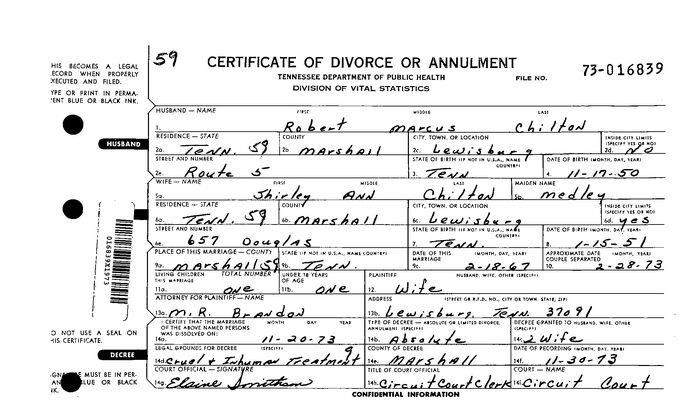 59
CERTIFICATE OF DIVORCE OR ANNULMENT
TENNESSEE DEPARTMENT OF PUBLIC HEALTH
DIVISION OF VITAL STATISTICS
FILE NO.
73-016839
HIS BECOMES A LEGAL
ECORD WHEN PROPERLY
XECUTED AND FILED.
YPE OR PRINT IN PERMA-
ENT BLUE OR BLACK INK.
HUSBAND
HUSBAND — NAME FIRST MIDDLE LAST
1. Robert Marcus Chilton
RESIDENCE — STATE COUNTY CITY, TOWN, OR LOCATION INSIDE CITY LIMITS
(SPECIFY YES OR NO)
2a. Tenn. 59 2b. Marshall 2c. Lewisburg 2d. No
STREET AND NUMBER STATE OF BIRTH (IF NOT IN U.S.A., NAME COUNTRY) DATE OF BIRTH (MONTH, DAY, YEAR)
2e. Route 5 3. Tenn 4. 11-17-50
WIFE — NAME FIRST MIDDLE LAST MAIDEN NAME
5a. Shirley Ann Chilton 5b. Medley
RESIDENCE — STATE COUNTY CITY, TOWN, OR LOCATION INSIDE CITY LIMITS
(SPECIFY YES OR NO)
6a. Tenn. 59 6b. Marshall 6c. Lewisburg 6d. yes
STREET AND NUMBER STATE OF BIRTH (IF NOT IN U.S.A., NAME COUNTRY) DATE OF BIRTH (MONTH, DAY, YEAR)
6e. 657 Douglas 7. Tenn. 8. 1-15-51
PLACE OF THIS MARRIAGE — COUNTY STATE (IF NOT IN U.S.A., NAME COUNTRY) DATE OF THIS MARRIAGE (MONTH, DAY, YEAR) APPROXIMATE DATE COUPLE SEPARATED (MONTH, DAY, YEAR)
9a. Marshall 59 9b. Tenn. 9c. 2-18-67 10. 2-28-73
LIVING CHILDREN THIS MARRIAGE TOTAL NUMBER UNDER 18 YEARS OF AGE PLAINTIFF HUSBAND, WIFE, OTHER (SPECIFY)
11a. one 11b. one 12. Wife
ATTORNEY FOR PLAINTIFF — NAME ADDRESS (STREET OR R.F.D. NO., CITY OR TOWN, STATE, ZIP)
13a. M.R. Brandon 13b. Lewisburg, Tenn. 37091
I CERTIFY THAT THE MARRIAGE OF THE ABOVE NAMED PERSONS WAS DISSOLVED ON: MONTH DAY YEAR TYPE OF DECREE — ABSOLUTE OR LIMITED DIVORCE, ANNULMENT (SPECIFY) DECREE GRANTED TO HUSBAND, WIFE, OTHER (SPECIFY)
14a. 11-20-73 14b. Absolute 14c. 2 Wife
LEGAL GROUNDS FOR DECREE (SPECIFY) COUNTY OF DECREE DATE OF RECORDING (MONTH, DAY, YEAR)
14d. Cruel & Inhuman Treatment 9 14e. Marshall 14f. 11-30-73
COURT OFFICIAL — SIGNATURE TITLE OF COURT OFFICIAL COURT — NAME
14g. Elaine 14h. Circuit Court Clerk 14i. Circuit Court
CONFIDENTIAL INFORMATION
WIFE
016839X1973
O NOT USE A SEAL ON
HIS CERTIFICATE.
DECREE
MUST BE IN PER-
BLUE OR BLACK